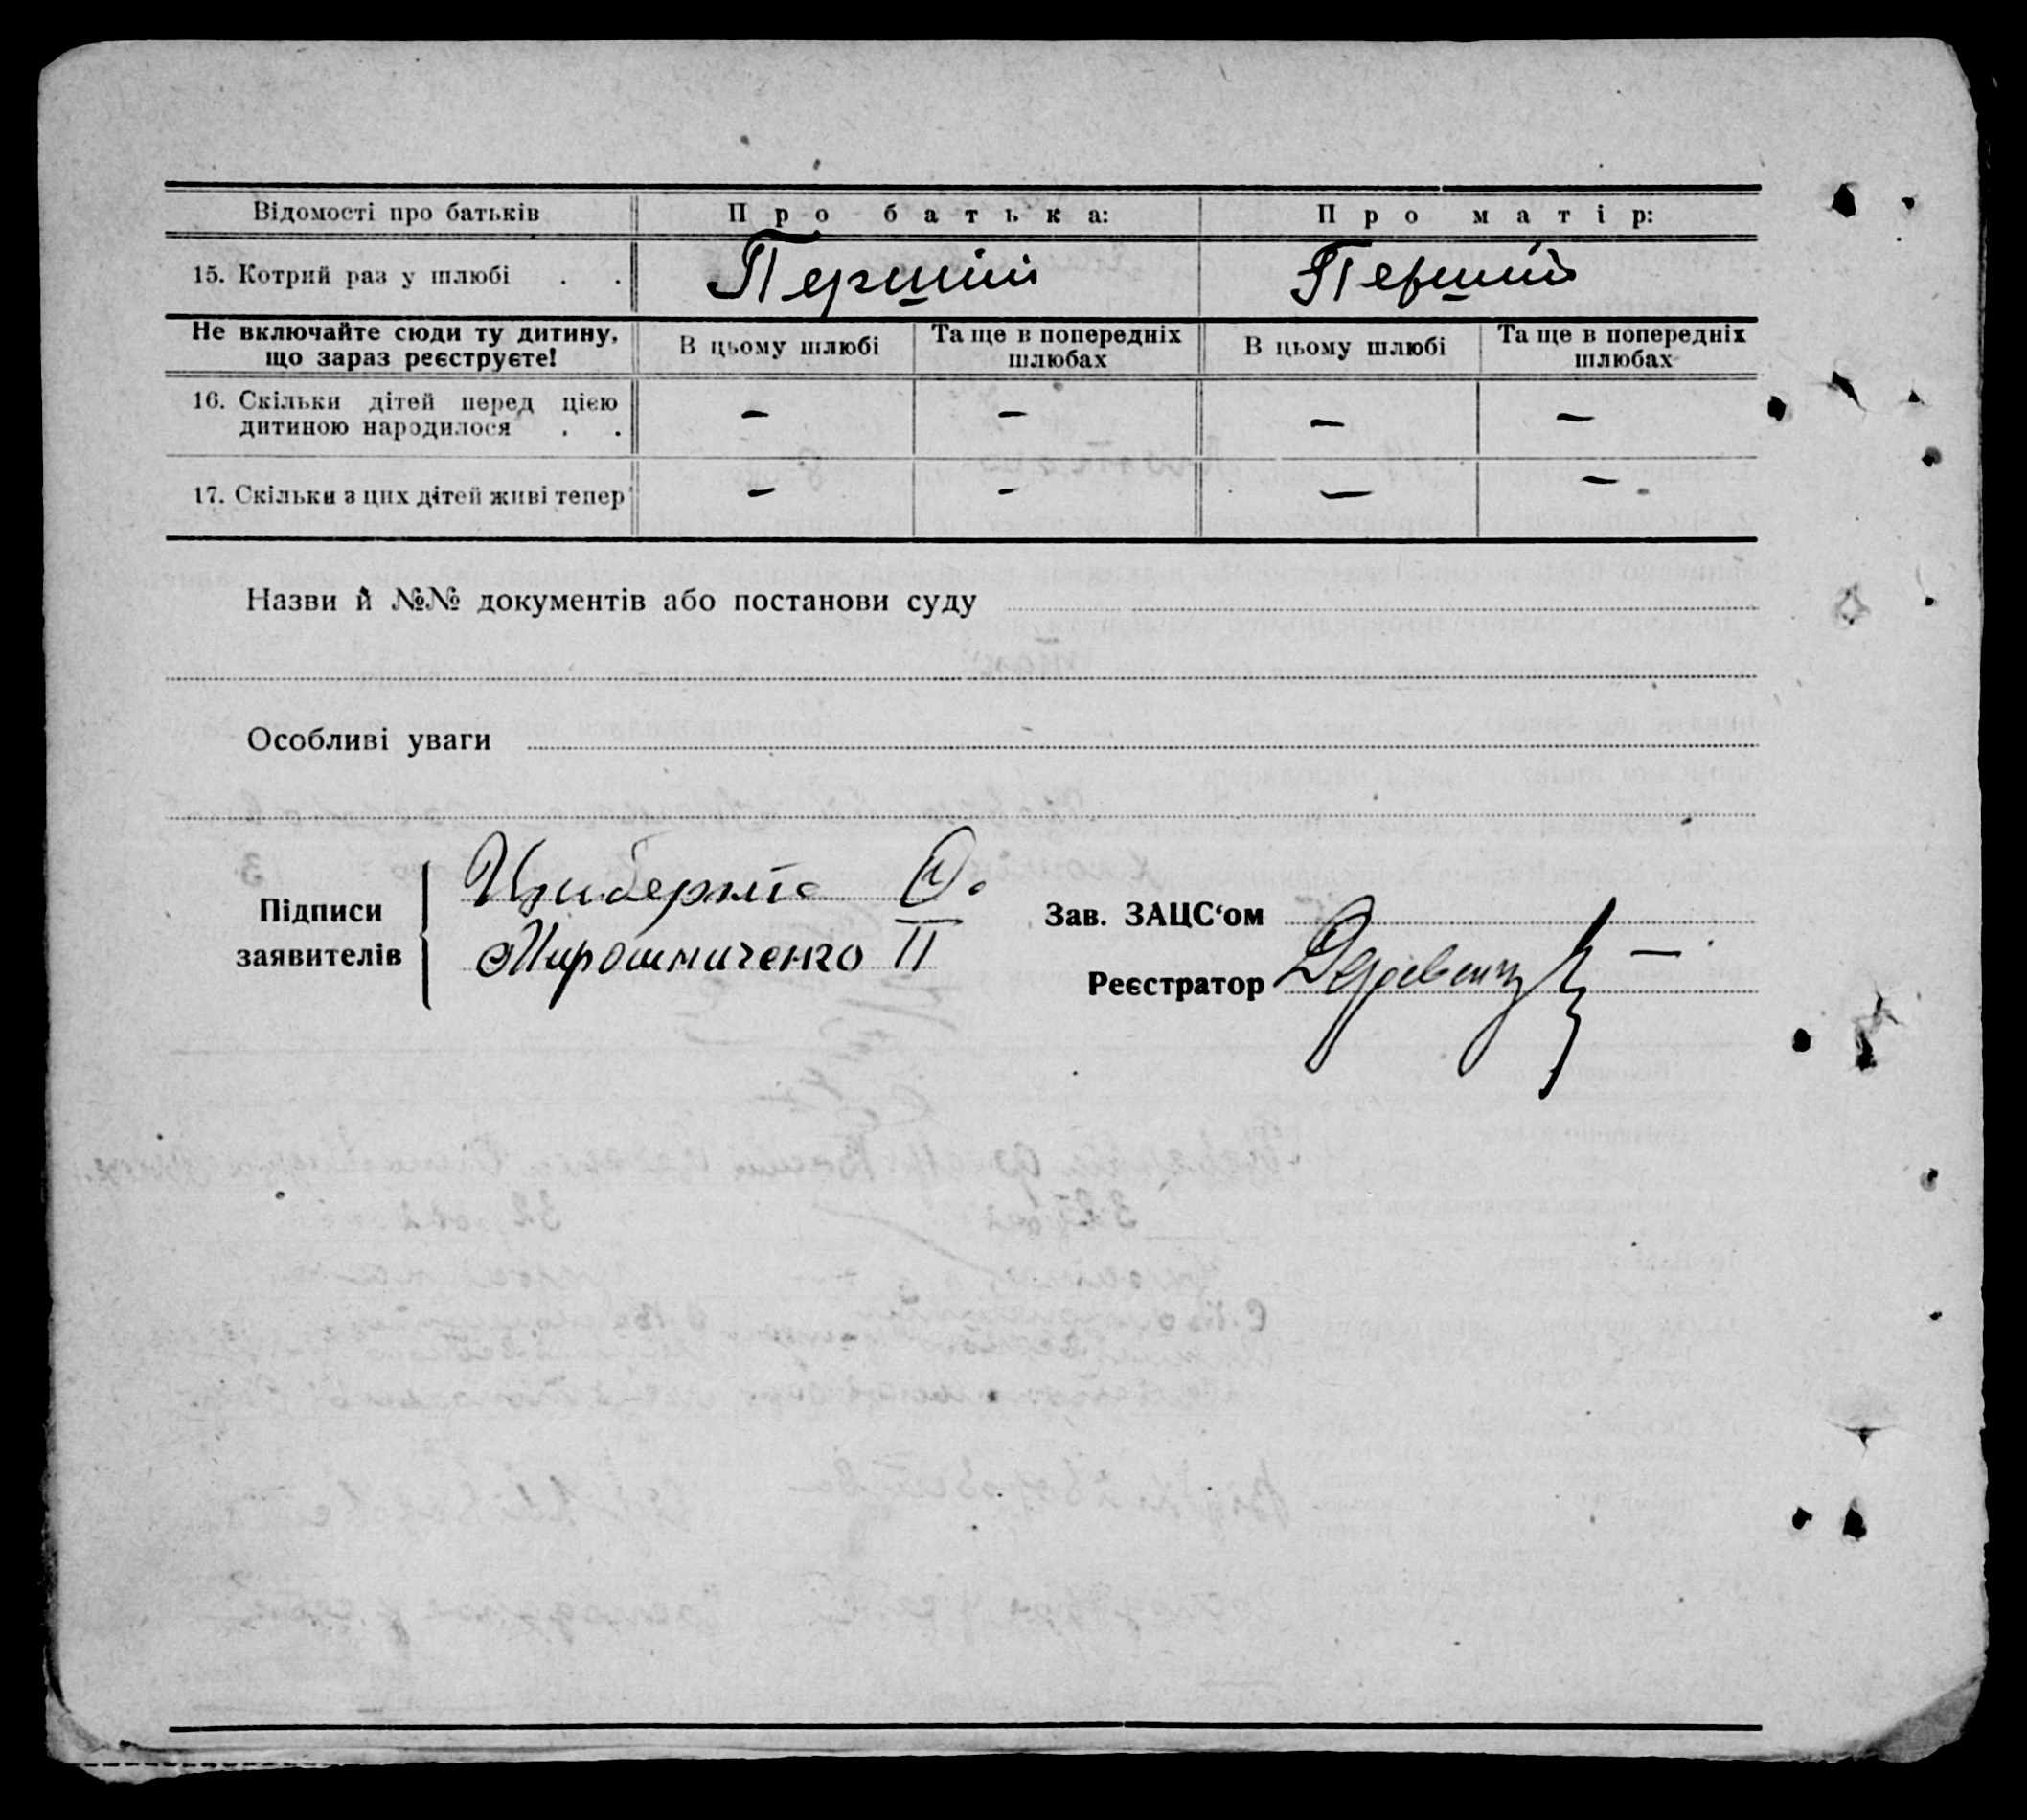 Відомості про батьків Про батька: Про матір:
15. Котрий раз у шлюбі . . Перший Перший
Не включайте сюди ту дитину, що зараз реєструєте! В цьому шлюбі Та ще в попередніх шлюбах В цьому шлюбі Та ще в попередніх шлюбах
16. Скільки дітей перед цією
дитиною народилося . . — — — —
17. Скільки з цих дітей живі тепер — — — —
Назви й №№ документів або постанови суду
Особливі уваги
Підписи
заявителів
Мирошниченко П
Зав. ЗАЦС‘ом
Реєстратор